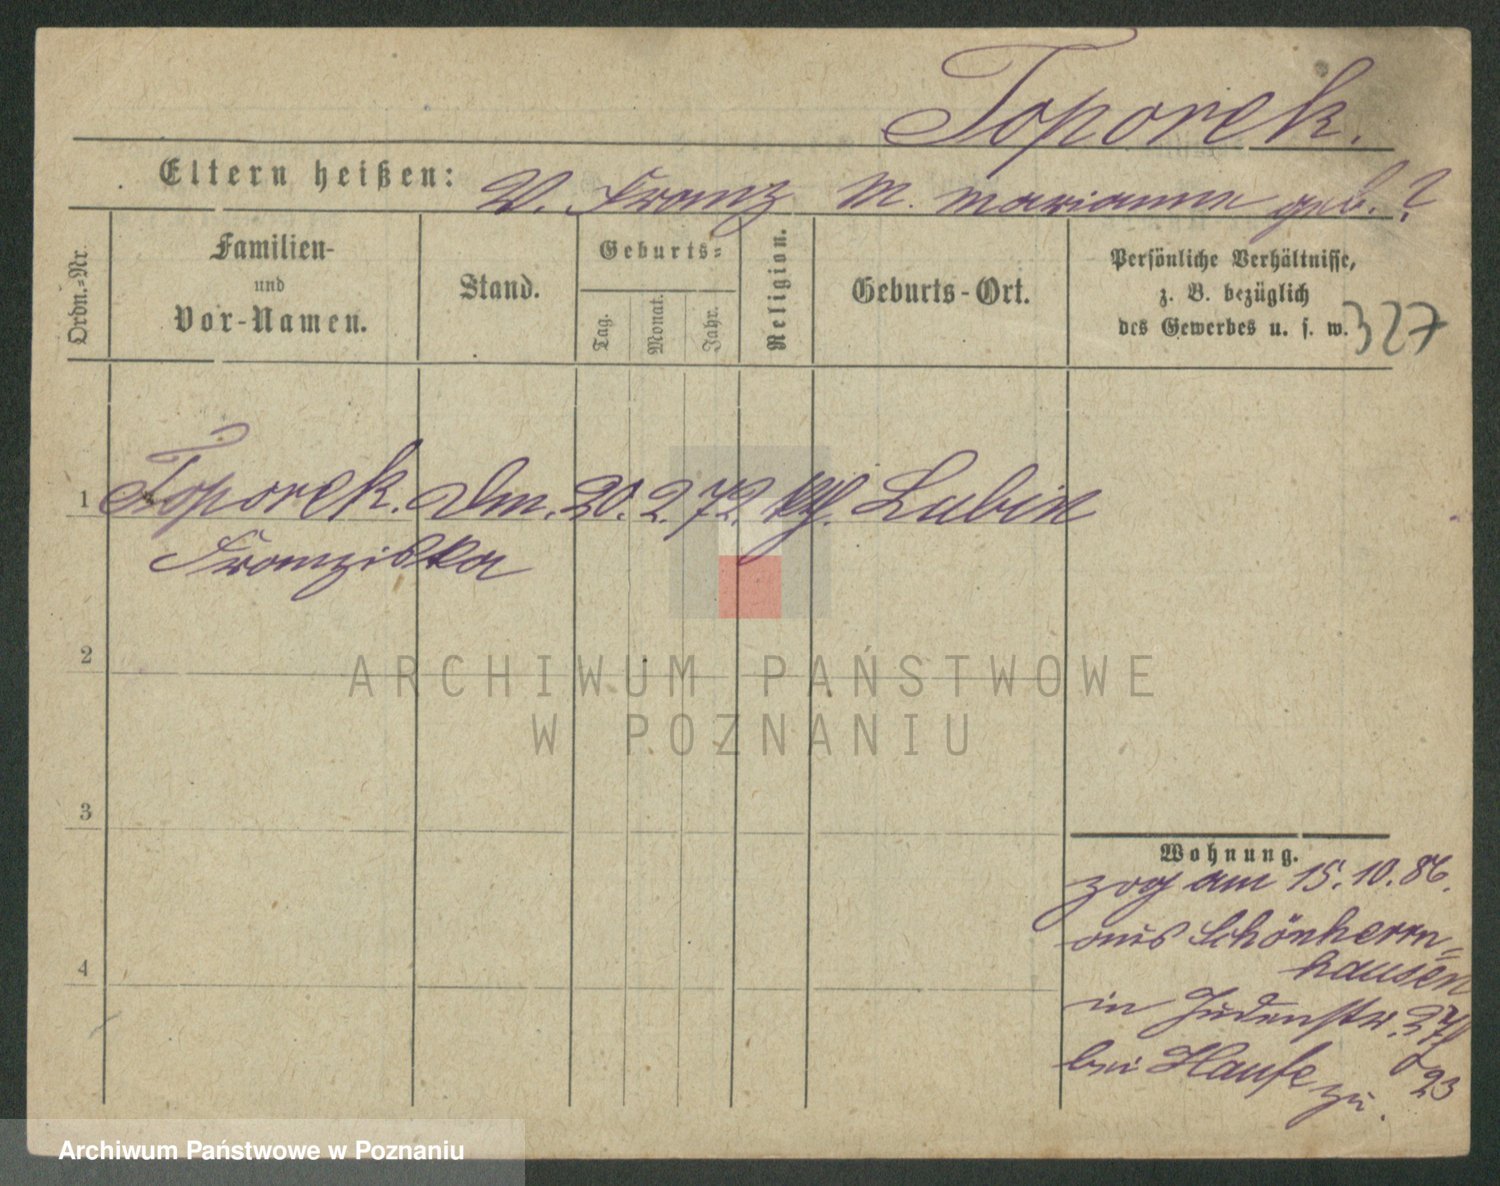 Toporek.
Eltern heißen: V. Franz M. Marianna geb. ?
Ordn.-Nr.
Familien-
und
Vor-Namen.
Stand.
Geburts-
Tag.
Monat.
Jahr.
Religion.
Geburts-Ort.
Persönliche Verhältnisse,
z. B. bezüglich
des Gewerbes u. s. w.
327
1 Toporek. Dm. 20. 2. 72. kth. Lubin
Franziska
2
ARCHIWUM PAŃSTWOWE
W POZNANIU
3
Wohnung.
zog am 15. 10. 86.
aus Schönherrn-
hausen
in Judenstr. 37/
bei Haufe zu.
23
4
Archiwum Państwowe w Poznaniu